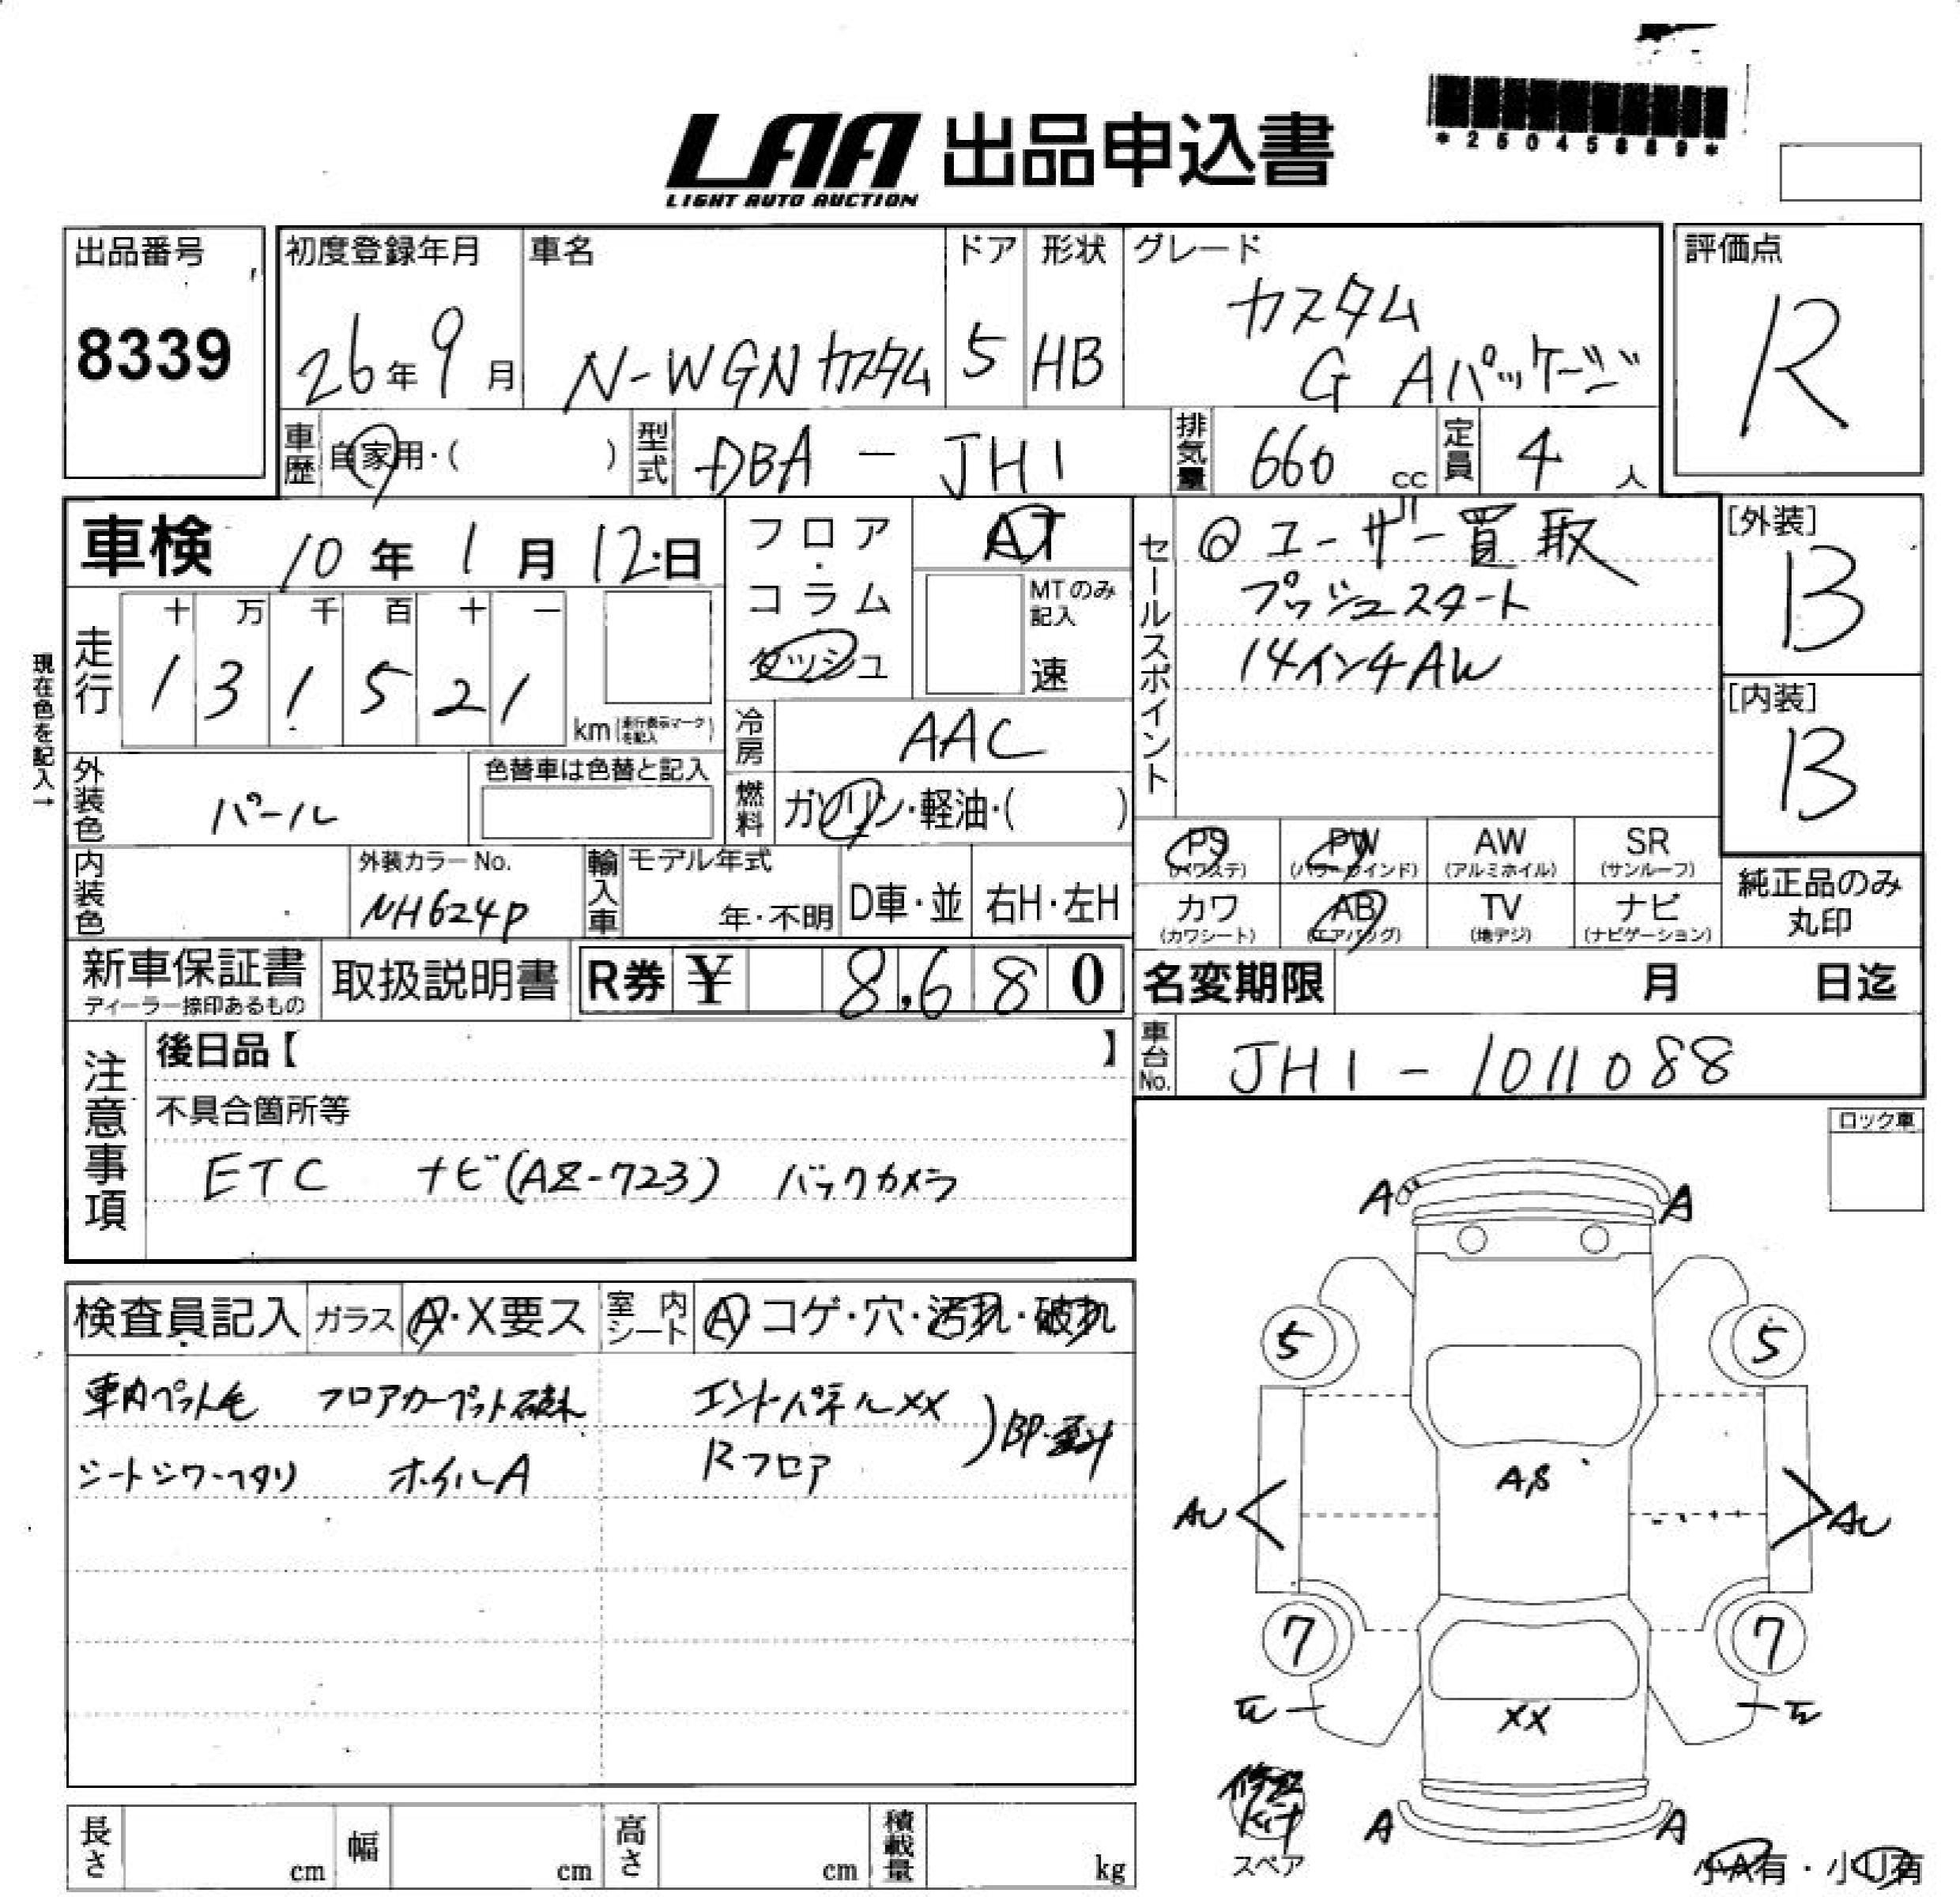 *25045889*
LAA 出品申込書
LIGHT AUTO AUCTION
出品番号
8339
初度登録年月
26年9月
車名
N-WGNカスタム
ドア
5
形状
HB
グレード
カスタム
G Aパッケージ
評価点
R
車歴
自家用・( )
型式
DBA-JH1
排気量
660 cc
定員
4人
車検 10年1月12日
フロア・コラム
ダッシュ
AT
MTのみ記入
速
セールスポイント
◎ユーザー買取
プッシュスタート
14インチAW
[外装]
B
[内装]
B
現在色を記入→
走行
十 万 千 百 十 一
1 3 1 5 2 1
km (走行表示マークを記入)
冷房
AAC
外装色
パール
色替車は色替と記入
燃料
ガソリン・軽油・( )
PS
(パワステ)
PW
(パワーウインド)
AW
(アルミホイル)
SR
(サンルーフ)
内装色
外装カラーNo.
NH624P
輸入車
モデル年式
年・不明
D車・並
右H・左H
カワ
(カワシート)
AB
(エアバッグ)
TV
(地デジ)
ナビ
(ナビゲーション)
純正品のみ
丸印
新車保証書
ディーラー捺印あるもの
取扱説明書
R券 ¥ 8,680
名変期限 月 日迄
注意事項
後日品【 】
車台No.
JH1-1011088
不具合箇所等
ETC ナビ(AZ-723) バックカメラ
ロック車
A A
検査員記入
ガラス
A・X要ス
室内シート
A コゲ・穴・汚れ・破れ
車内ペット毛 フロアカーペット破れ エンドパネルXX
シートシワ・ヘタリ ホイルA Rフロア
5 5
AU AU
7 7
XX
A A
スペア
小A有・小U有
長さ cm
幅 cm
高さ cm
積載量 kg